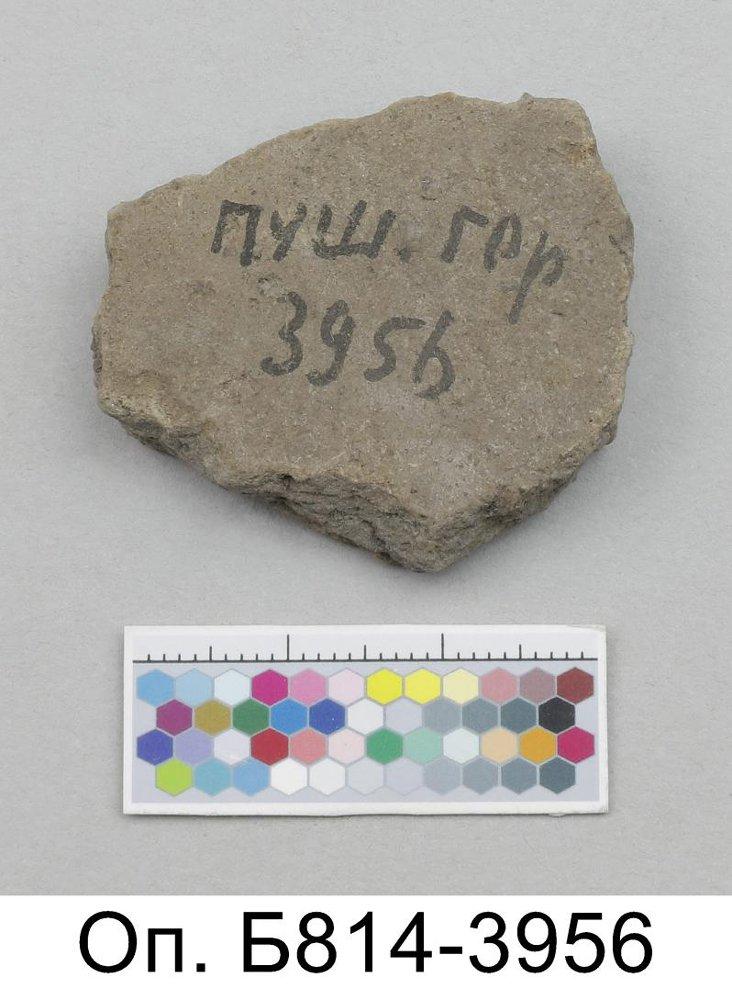 пуш. гор
3956
Оп. Б814-3956